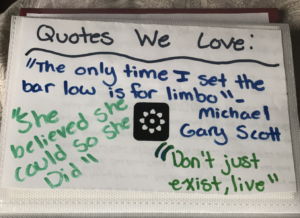 Quotes We Love:
"The only time I set the
bar low is for limbo" -
Michael
Gary Scott
"She
believed she
could so she
Did"
"Don't just
exist, live"